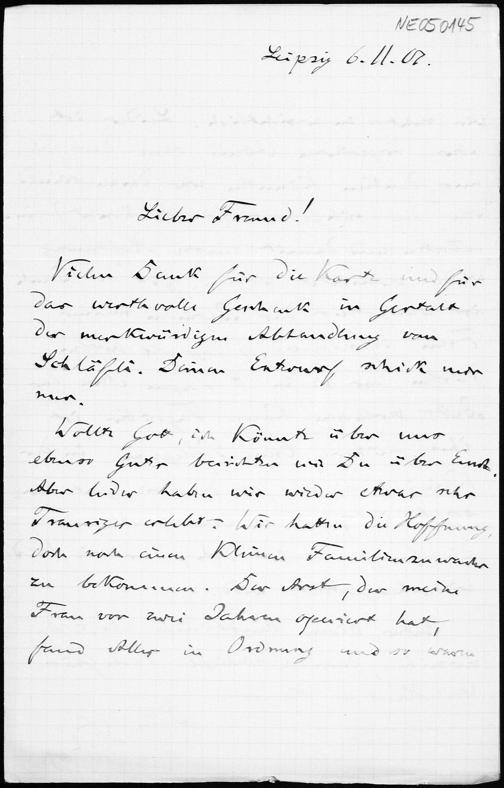 NE050145
Leipzig 6.11.07.
Lieber Freund!
Vielen Dank für die Karte und für
das werthvolle Geschenk in Gestalt
der merkwürdigen Abhandlung von
Schläfli. Deinen Entwurf schick mir
nur.
Wollte Gott, ich könnte über uns
ebenso Gutes berichten wie Du über Euch.
Aber leider haben wir wieder etwas sehr
Trauriges erlebt: Wir hatten die Hoffnung,
doch noch einen kleinen Familienzuwachs
zu bekommen. Der Arzt, der meine
Frau vor zwei Jahren operiert hat,
fand Alles in Ordnung und so waren